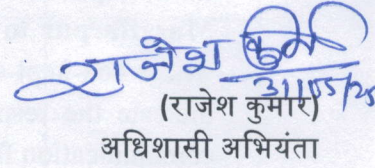 राजेश कुमार
31/05/25
(राजेश कुमार)
अधिशासी अभियंता